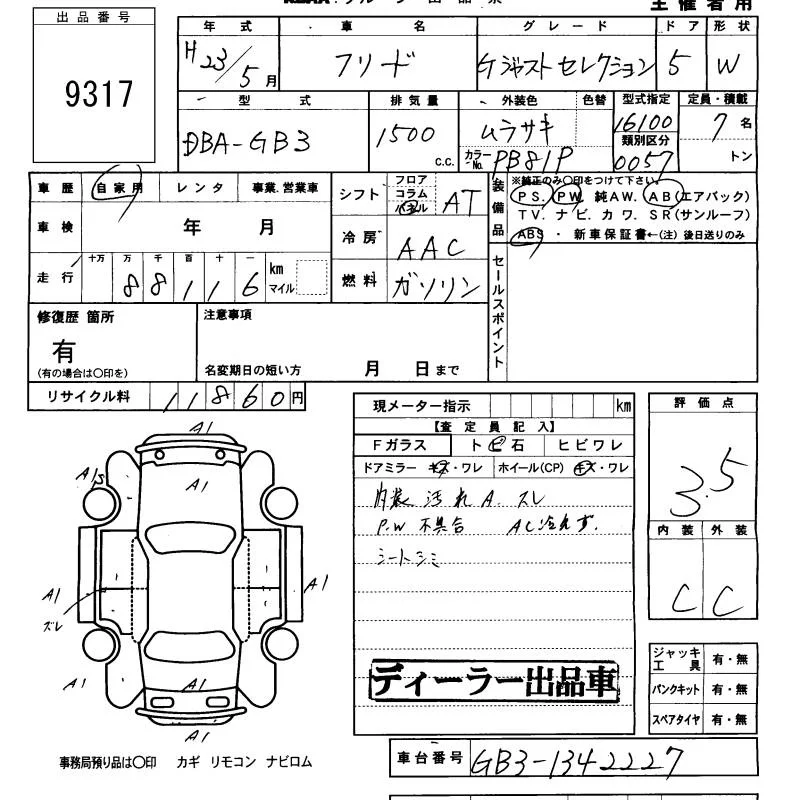 出品番号
9317
主催者用
年式 車名 グレード ドア 形状
H23/5月 フリード Gジャストセレクション 5 W
型式 排気量 外装色 色替 型式指定 定員・積載
DBA-GB3 1500 c.c. ムラサキ 16100 7名
類別区分
カラーNo. PB81P 0057 トン
車歴 自家用 レンタ 事業.営業車
シフト フロア コラム パネル AT
装備品 ※純正のみ〇印をつけて下さい。
PS. PW. 純AW. AB(エアバック)
TV. ナビ. カワ. SR(サンルーフ)
ABS ・ 新車保証書←(注) 後日送りのみ
車検 年 月
冷房 AAC
走行 十万 万 千 百 十 一
88116 km マイル
燃料 ガソリン
セールスポイント
修復歴 箇所
有
(有の場合は〇印を)
注意事項
名変期日の短い方 月 日まで
リサイクル料 11860円
現メーター指示 km
【査定員記入】
Fガラス トビ石 ヒビワレ
ドアミラー キズ・ワレ ホイール(CP) キズ・ワレ
内装 汚れ A. スレ
P.W 不具合 AC冷えず.
シートシミ
ディーラー出品車
評価点
3.5
内装 外装
C C
ジャッキ工具 有・無
パンクキット 有・無
スペアタイヤ 有・無
A1
A1
A1
A1
ズレ
A1
A1
A1
A1
A1
事務局預り品は〇印 カギ リモコン ナビロム
車台番号 GB3-1342227